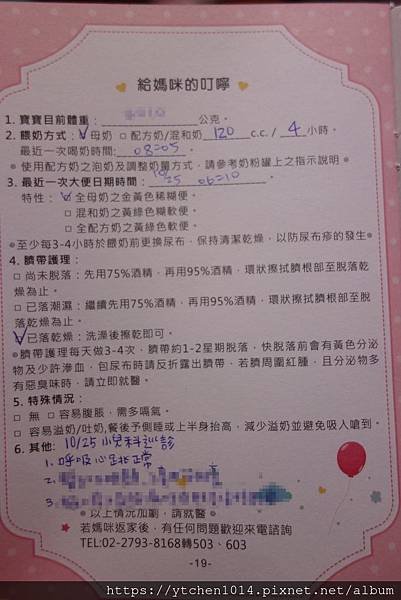 給媽咪的叮嚀
1. 寶寶目前體重：公克。
2. 餵奶方式：☑母奶 □ 配方奶/混和奶 120 c.c. / 4 小時。
最近一次喝奶時間: 08:05。
● 使用配方奶之泡奶及調整奶量方式，請參考奶粉罐上之指示說明●
3. 最近一次大便日期時間：10/25 06:10。
特性：☑ 全母奶之金黃色稀糊便。
□ 混和奶之黃綠色糊軟便。
□ 全配方奶之黃綠色軟便。
●至少每3-4小時於餵奶前更換尿布，保持清潔乾燥，以防尿布疹的發生●
4. 臍帶護理：
□ 尚未脫落：先用75%酒精，再用95%酒精，環狀擦拭臍根部至脫落乾
燥為止。
□ 已落潮濕：繼續先用75%酒精，再用95%酒精，環狀擦拭臍根部至脫
落乾燥為止。
☑已落乾燥：洗澡後擦乾即可。
●臍帶護理每天做3-4次，臍帶約1-2星期脫落，快脫落前會有黃色分泌
物及少許滲血，包尿布時請反折露出臍帶，若臍周圍紅腫，且分泌物多
有惡臭味時，請立即就醫。
5. 特殊情況：
□ 無 □ 容易腹脹，需多嗝氣。
□ 容易溢奶/吐奶,餐後予側睡或上半身抬高，減少溢奶並避免吸入嗆到。
6. 其他: 10/25 小兒科巡診
1. 呼吸心跳正常
2.
3.
●以上情況加劇，請就醫●
★ 若媽咪返家後，有任何問題歡迎來電諮詢
TEL:02-2793-8168轉503、603
-19-
https://ytchen1014.pixnet.net/album